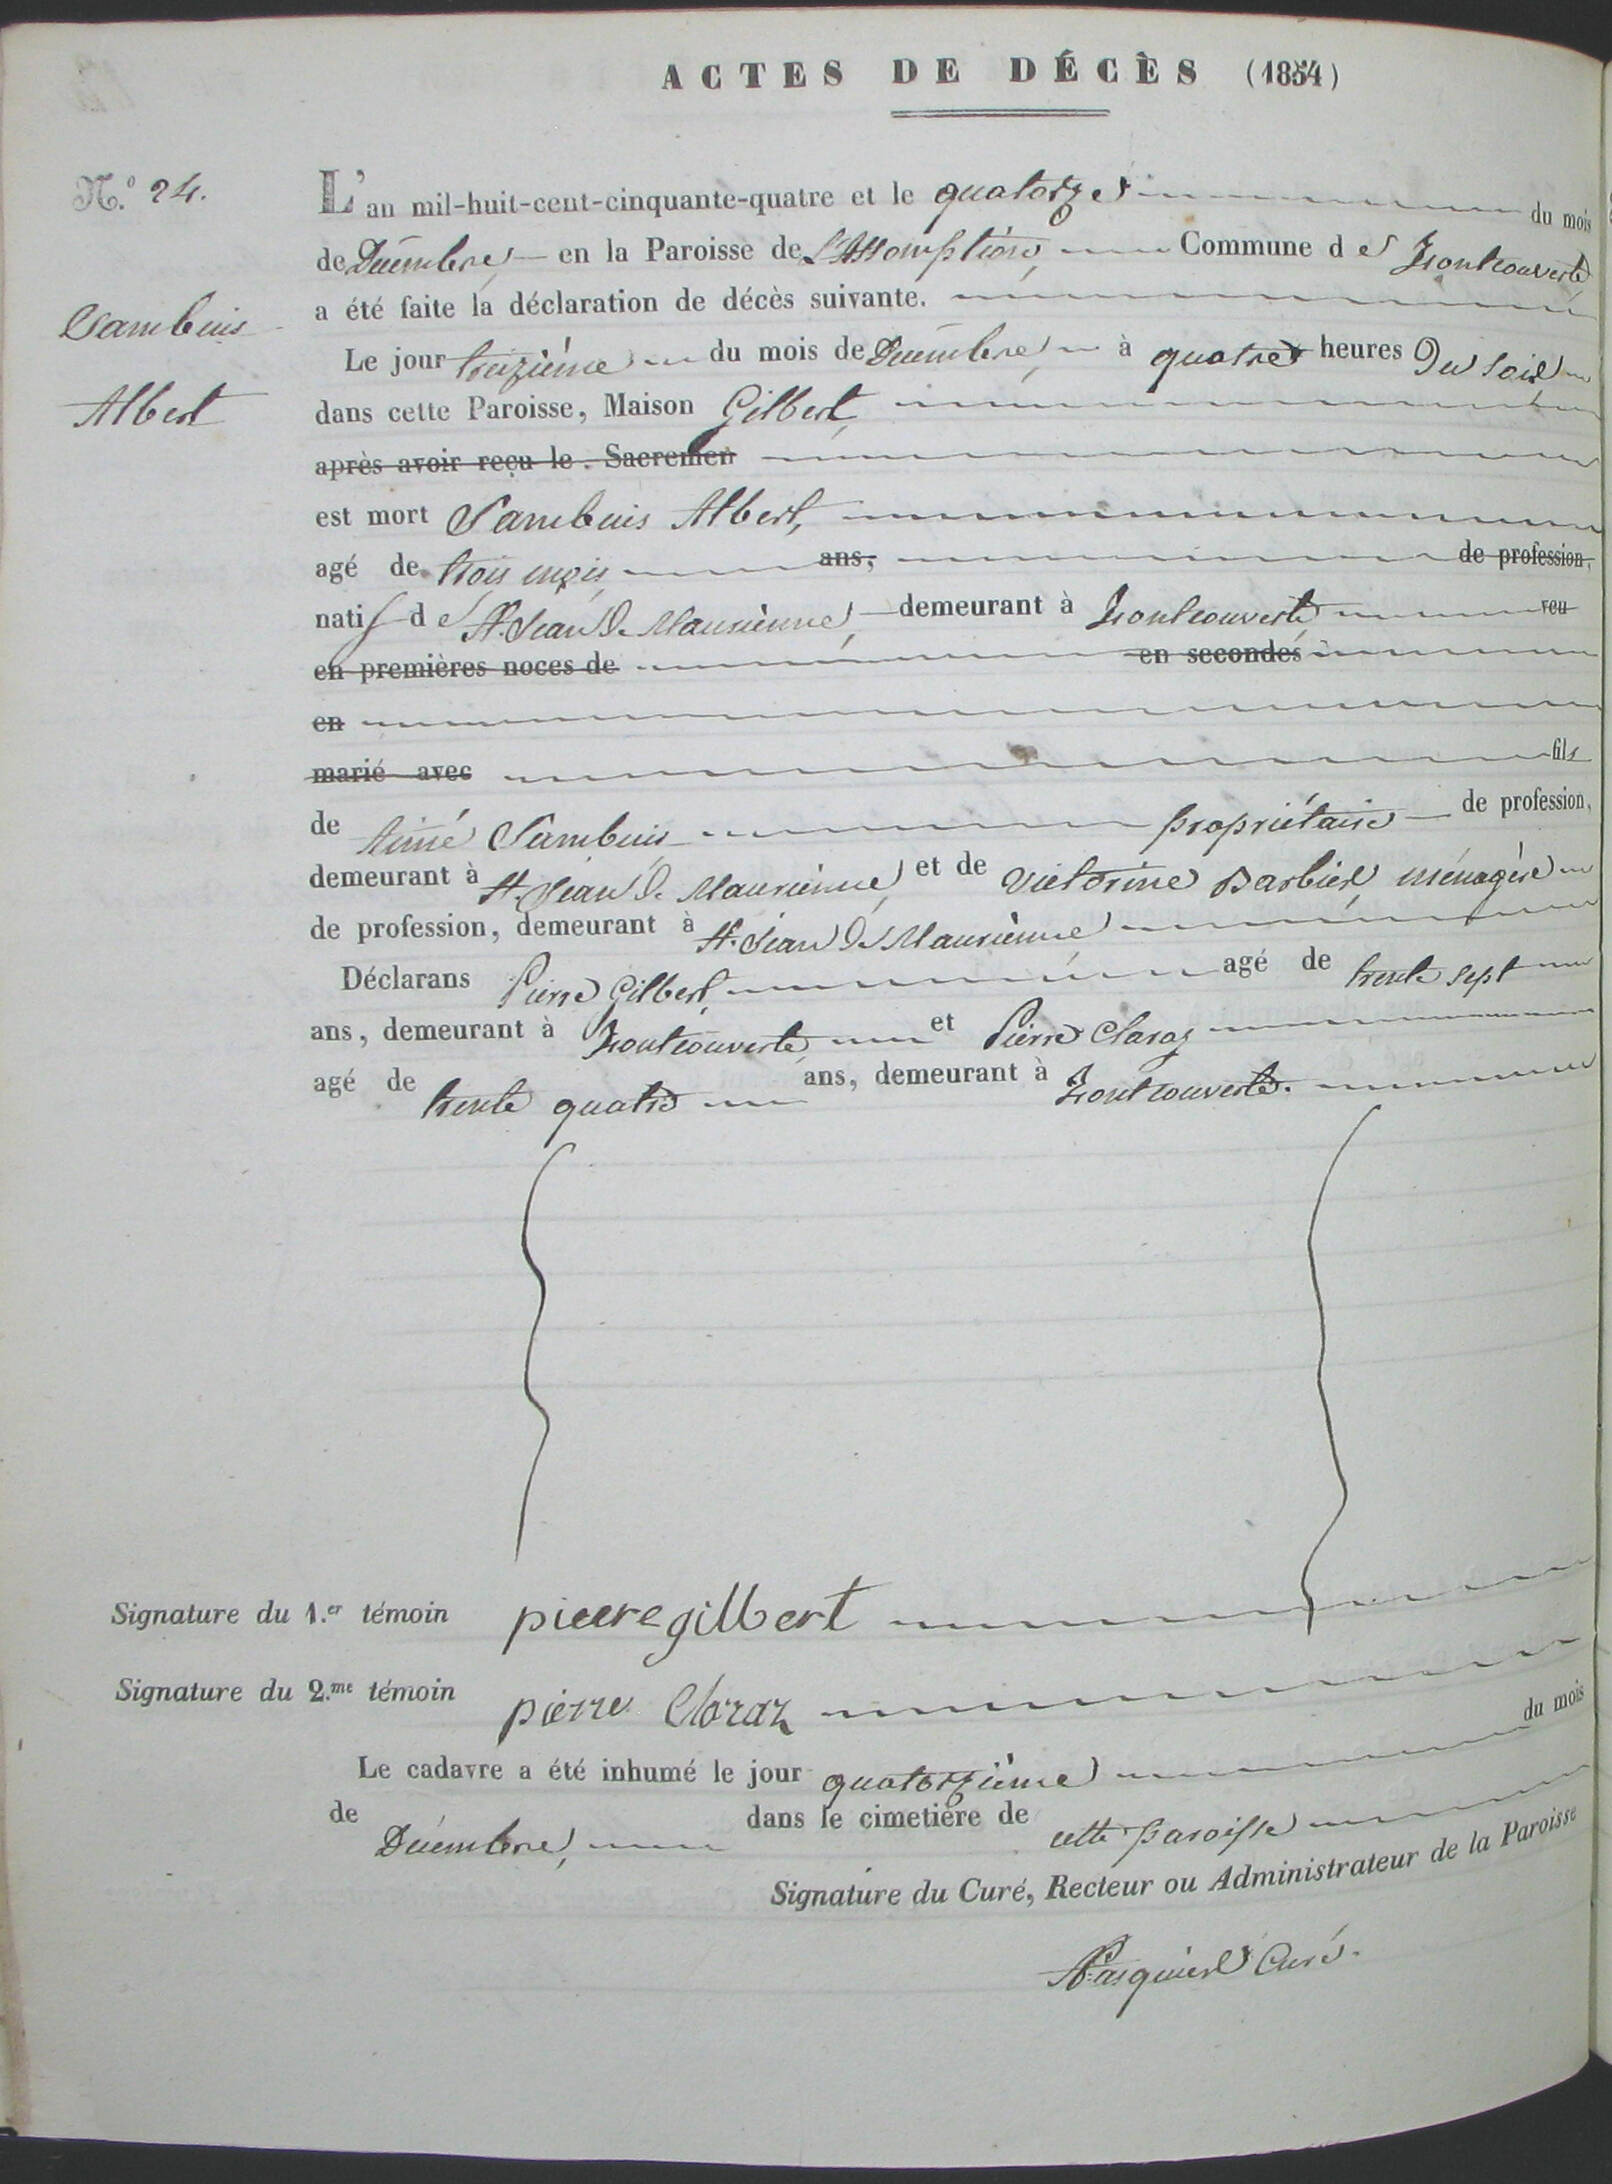 ACTES DE DÉCÈS (1854)
N.º 24.
L'an mil-huit-cent-cinquante-quatre et le quatorze du mois
de Décembre en la Paroisse de L'Assomption, Commune de Fontcouverte
a été faite la déclaration de décès suivante.
Sambuis
Le jour treizième du mois de Décembre, à quatre heures Du soir
Albert
dans cette Paroisse, Maison Gilbert,
après avoir reçu le . Sacremen
est mort Sambuis Albert,
agé de trois mois, ans, de profession,
natif de St. Jean De Maurienne, demeurant à Fontcouverte, veu
en premières noces de en secondes
en
marié avec fils
de Aimé Sambuis propriétaire de profession,
demeurant à St. Jean De Maurienne, et de Victorine Barbier, ménagère
de profession, demeurant à St. Jean De Maurienne
Déclarans Pierre Gilbert, agé de trente sept
ans, demeurant à Fontcouverte, et Pierre Claraz
agé de trente quatre ans, demeurant à Fontcouverte.
Signature du 1.er témoin pierre gilbert
Signature du 2.me témoin pierre Claraz
Le cadavre a été inhumé le jour quatorzième du mois
de Décembre, dans le cimetière de cette paroisse
Signature du Curé, Recteur ou Administrateur de la Paroisse
Pasquier Curé.